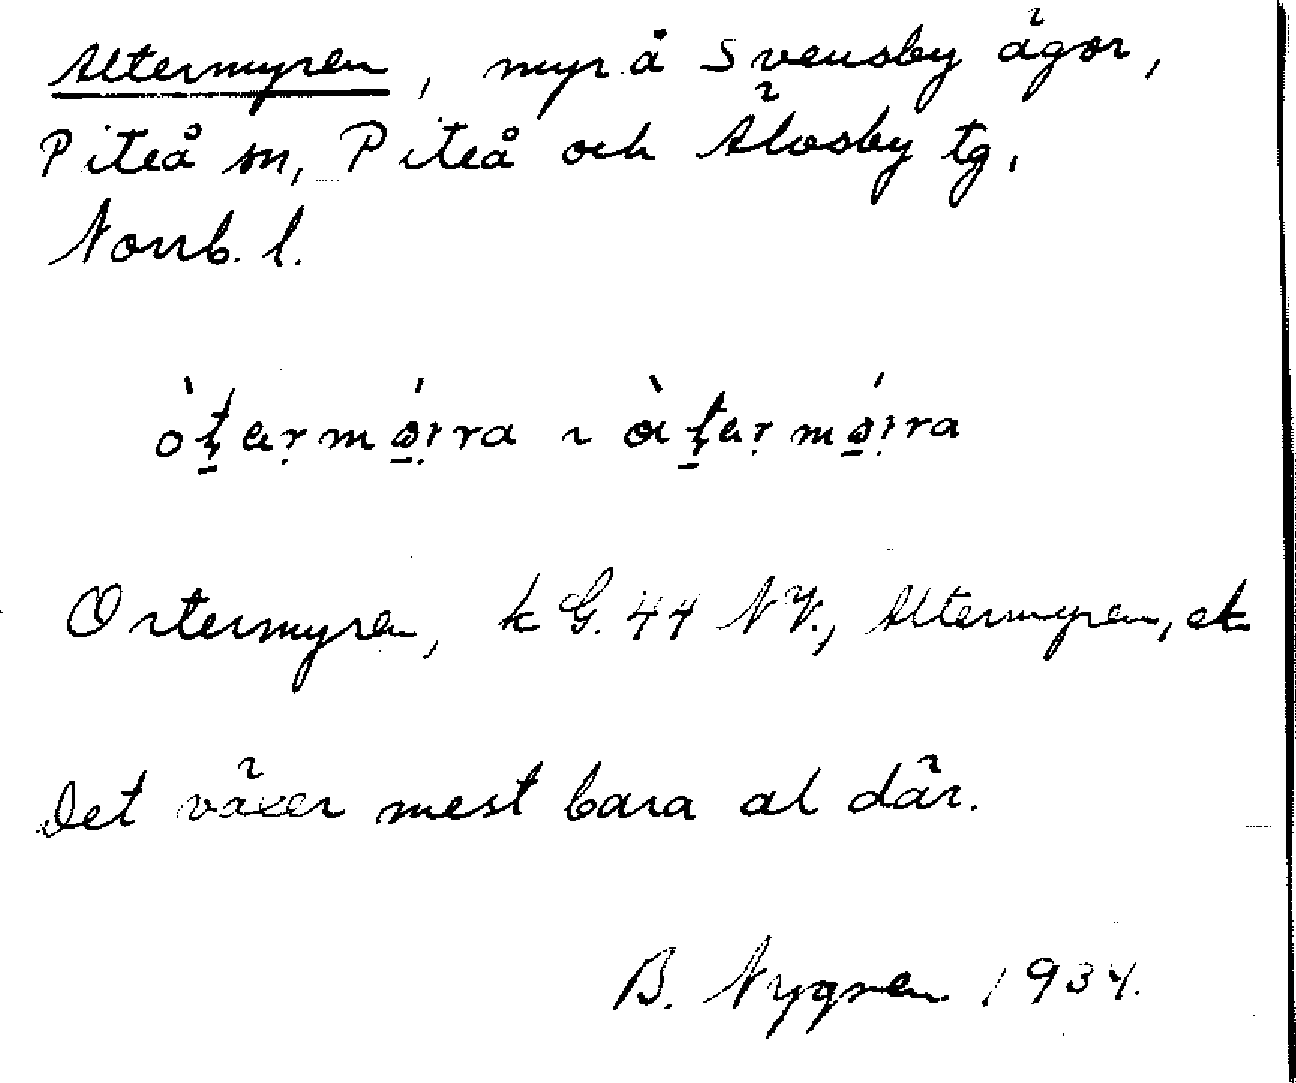 Altermyren, myr å Svensby ägor,
Piteå sn, Piteå och Älvsby tg,
Norrb. l.
Ortermyren, k G. 44 NV., Altermyren, ek
Det växer mest bara al där.
B. Nygren 1934.